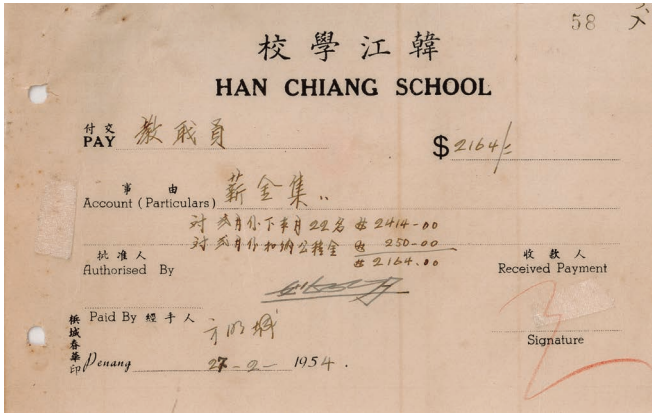 58
校學江韓
HAN CHIANG SCHOOL
付交
PAY 教職員 $2164/=
事由
Account (Particulars) 薪金集
对 弍月份下半月22名 $ 2414-00
对 弍月份扣纳公積金 $ 250-00
$ 2164.00
批准人 收款人
Authorised By Received Payment
Paid By 經手人 方明城
Signature
檳城春華印
Penang 27-2- 1954.